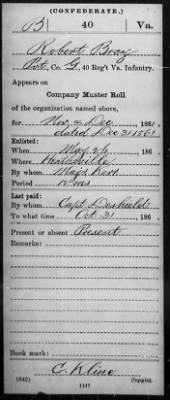 (CONFEDERATE.)
B 40 Va.
Robert Bray
Pvt, Co. G, 40 Reg't Va. Infantry.
Appears on
Company Muster Roll
of the organization named above,
for Nov & Dec, 1861.
dated Dec 31 1861
Enlisted:
When May 26, 186
Where
By whom Major
Period 12 mos
Last paid:
By whom Capt.
To what time Oct 31, 186
Present or absent Present
Remarks:
Book mark:
(642) C. Kline
Copyist.